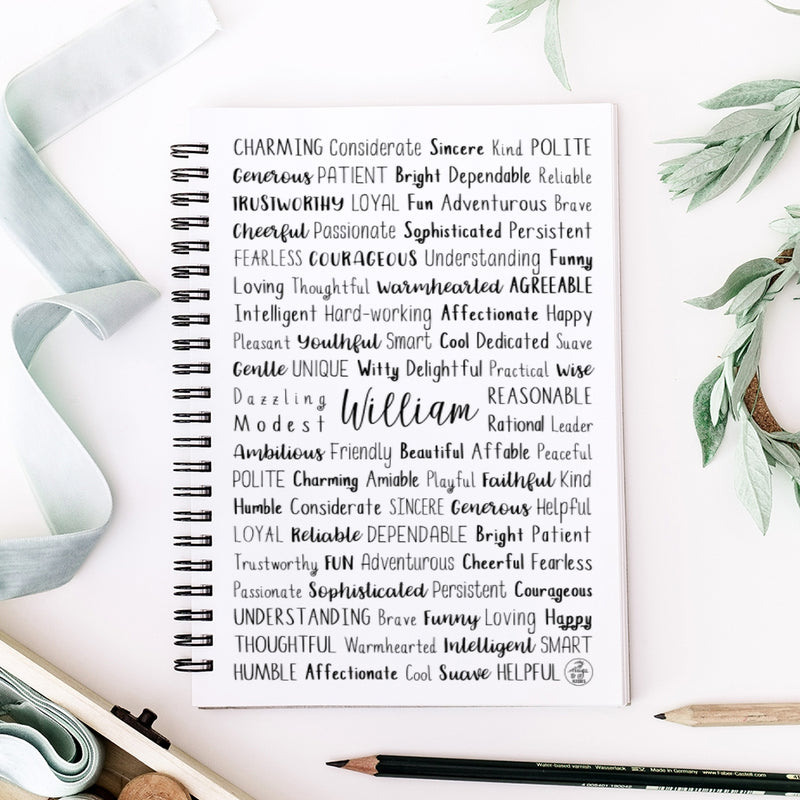 CHARMING Considerate Sincere Kind POLITE
Generous PATIENT Bright Dependable Reliable
TRUSTWORTHY LOYAL Fun Adventurous Brave
Cheerful Passionate Sophisticated Persistent
FEARLESS COURAGEOUS Understanding Funny
Loving Thoughtful Warmhearted AGREEABLE
Intelligent Hard-working Affectionate Happy
Pleasant Youthful Smart Cool Dedicated Suave
Gentle UNIQUE Witty Delightful Practical Wise
Dazzling REASONABLE
William
Modest Rational Leader
Ambitious Friendly Beautiful Affable Peaceful
POLITE Charming Amiable Playful Faithful Kind
Humble Considerate SINCERE Generous Helpful
LOYAL Reliable DEPENDABLE Bright Patient
Trustworthy FUN Adventurous Cheerful Fearless
Passionate Sophisticated Persistent Courageous
UNDERSTANDING Brave Funny Loving Happy
THOUGHTFUL Warmhearted Intelligent SMART
HUMBLE Affectionate Cool Suave HELPFUL
Water-based varnish Wasserlack Made in Germany www.Faber-Castell.com